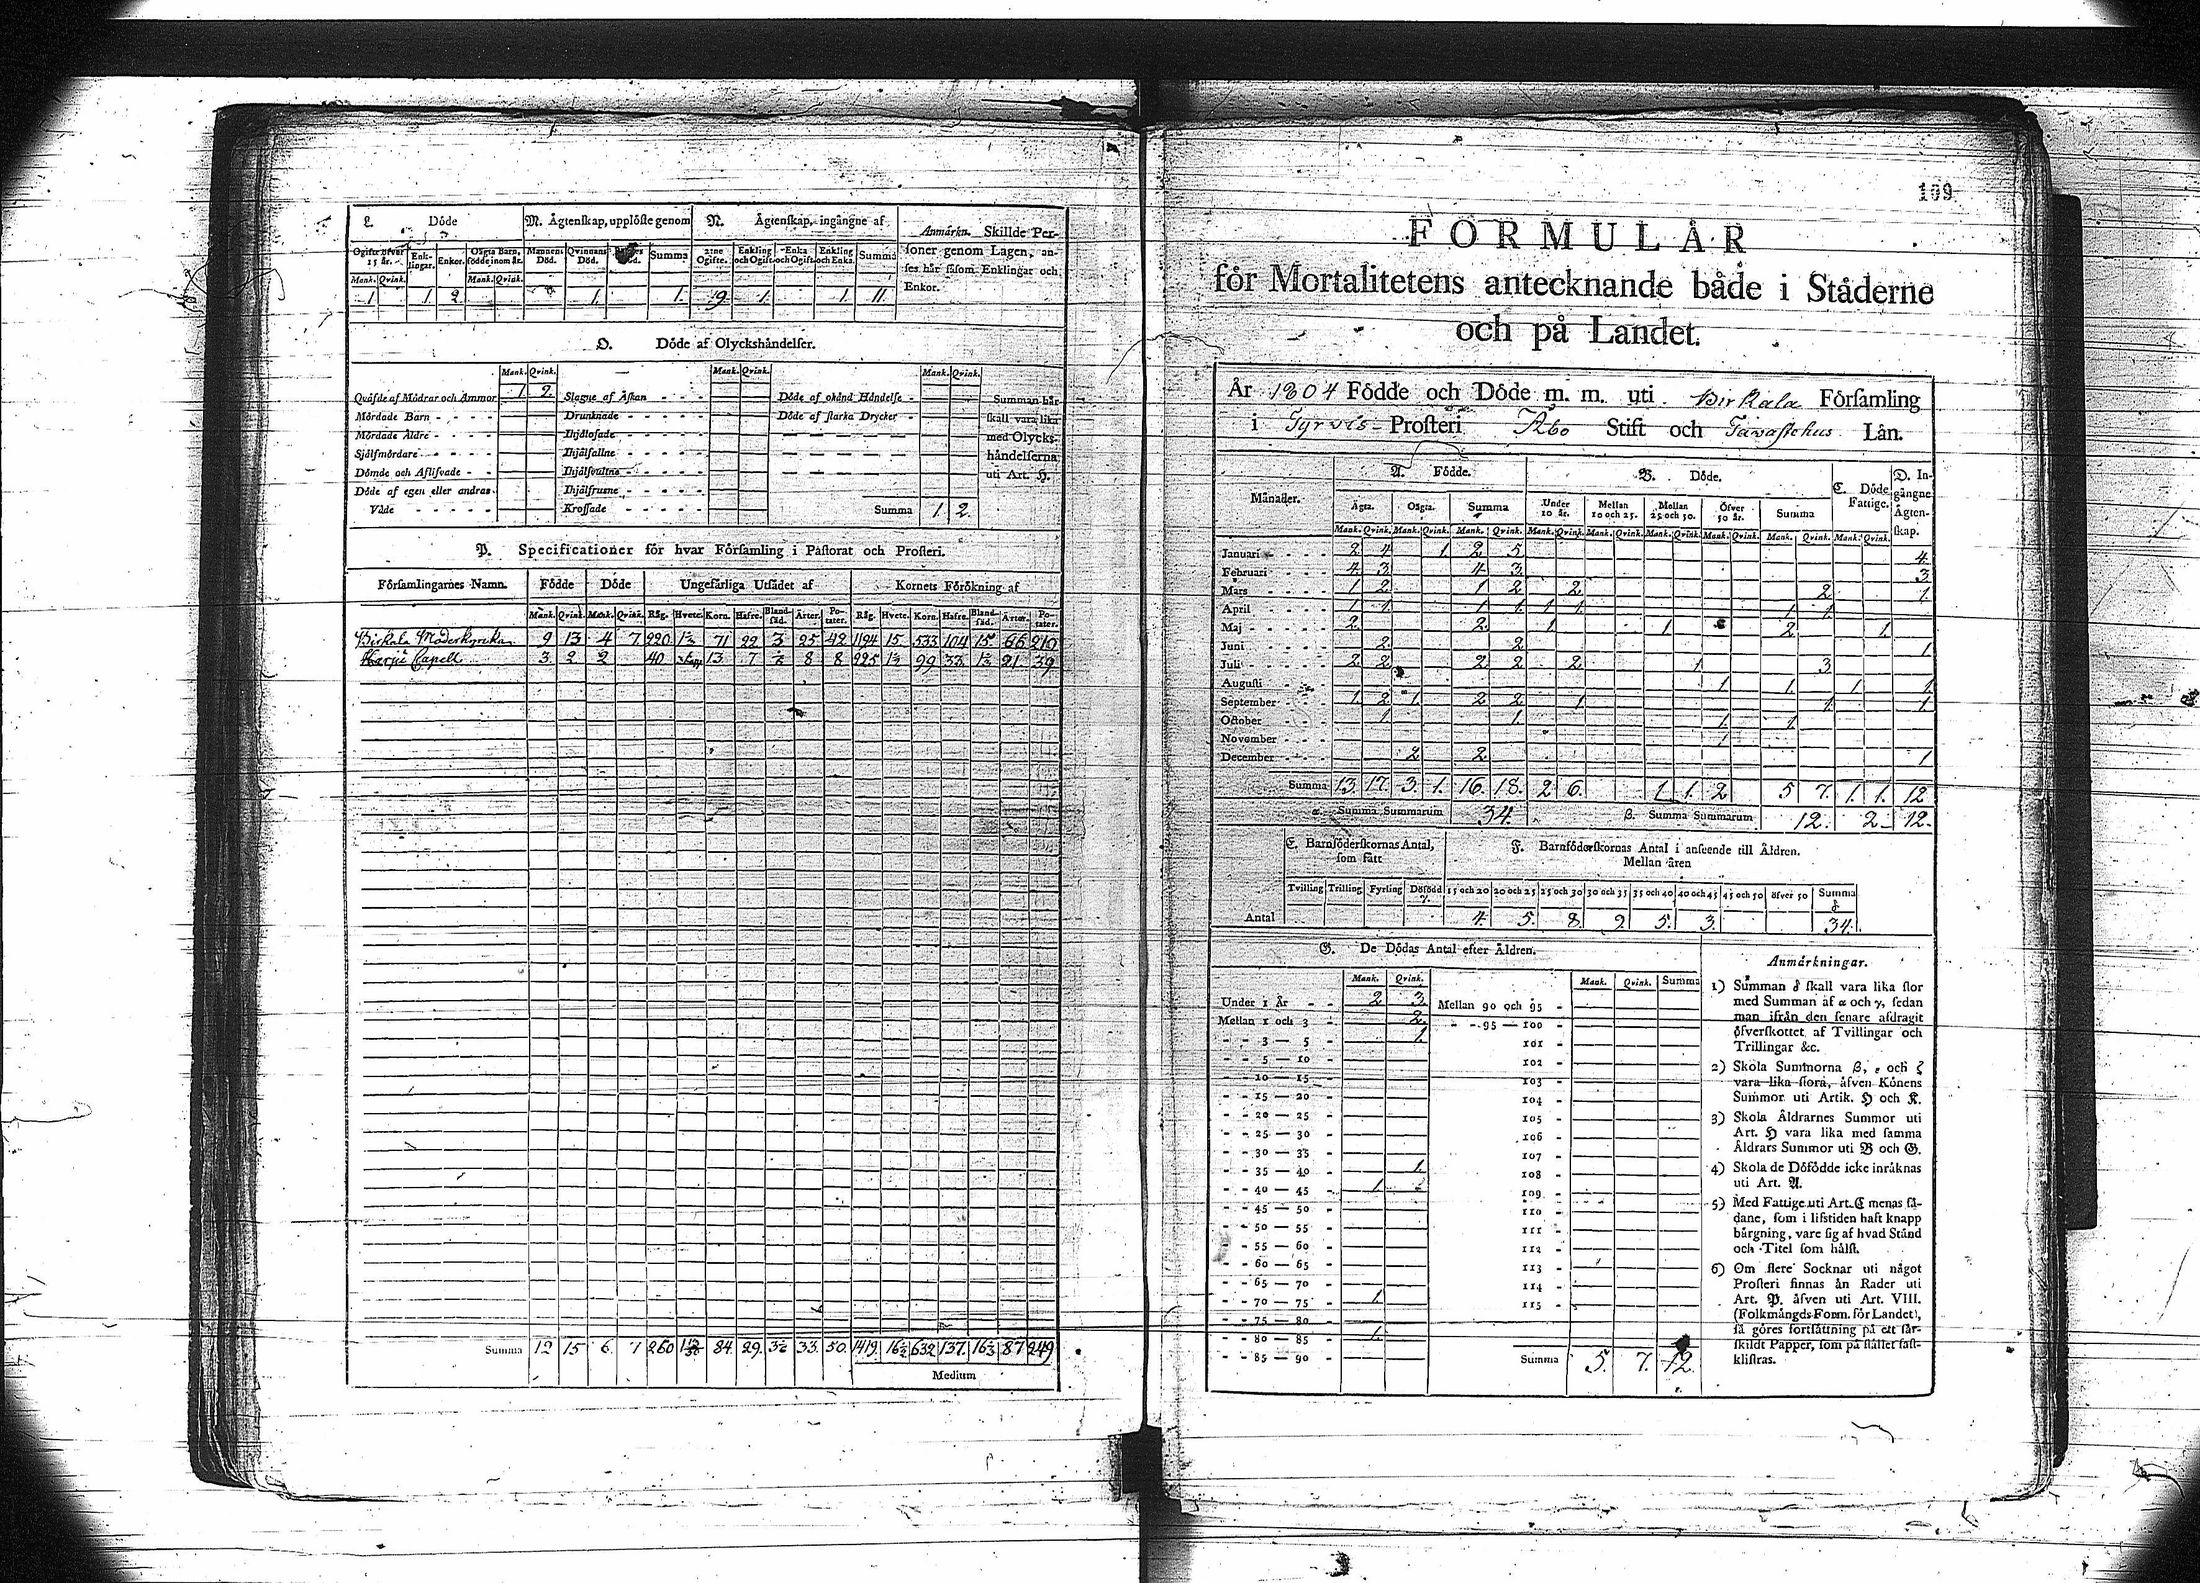 L. Döde
M. Ägtenskap, upplöste genom
N. Ägtenskap, ingångne af
Anmärkn. Skillde Personer
soner genom Lagen, anses
ses här såsom Enklingar och
Enkor.
Ogifte öfver 15 år. Enklingar. Enkor. Oägta Barn, födde inom år. Mannens Död. Qvinnans Död. Summa 2:ne Ogifte. Enkling och Ogift. Enka och Ogift. Enkling och Enka. Summa
Mank. Qvink. Mank. Qvink.
1 1. 2. 1. 1. 9. 1. 1. 11.
O. Döde af Olyckshändelser.
Mank. Qvink. Mank. Qvink. Mank. Qvink.
Quäfde af Mödrar och Ammor 1. 2. Slagne af Åskan Döde af okänd Händelse
Mördade Barn Drunknade Döde af starka Drycker
Mördade Äldre Ihjälosade
Sjelfmördare Ihjälfallne
Dömde och Aflifvade Ihjälsvultne
Döde af egen eller andras Ihjälfrusne
Våde Krossade Summa 1. 2.
Summan här
skall vara lika
med Olycks-
händelserna
uti Art. H.
P. Specificationer för hvar Församling i Pastorat och Prosteri.
Församlingarnes Namn. Födde Döde Ungefärliga Utsädet af Kornets Förökning af
Mank. Qvink. Mank. Qvink. Råg. Hvete. Korn. Hafre. Bland-säd. Ärter. Po-tater. Råg. Hvete. Korn. Hafre. Bland-säd. Ärter. Po-tater.
Birkala Moderkyrka 9 13 4 7 220 1½ 71 22 3 25 42 1194 15 533 104 15 66 210
Harju Capell 3 2 2 40 13 7 ½ 8 8 225 1½ 99 33 1½ 21 39
Summa 12 15 6. 7 260 84. 29. 3½ 33. 50. 1419. 16½ 632 137. 16½ 87 249
Medium
109
FORMULÄR
för Mortalitetens antecknande både i Städerne
och på Landet.
År 1804 Födde och Döde m. m. uti Birkala Församling
i Tyrvis Prosteri Åbo Stift och Tawastehus Län.
Månader. A. Födde. B. Döde. C. Döde Fattige. D. Ingångne Ägtenskap.
Ägta. Oägta. Summa Under 10 år. Mellan 10 och 25. Mellan 25 och 50. Öfver 50 år. Summa
Mank. Qvink. Mank. Qvink. Mank. Qvink. Mank. Qvink. Mank. Qvink. Mank. Qvink. Mank. Qvink. Mank. Qvink. Mank. Qvink.
Januari 2 4 1 2 5 4.
Februari 4 3 4 3 3
Mars 1 2 1 2 2 2 1
April 1 1 1 1 1 1 1 1
Maj 2. 2. 1 1 2 1.
Juni 2 2 1
Juli 2 2 2 2 2 1 3
Augusti 1 1. 1 1.
September 1. 2 1. 2 2 1 1. 1
October 1 1. 1. 1
November
December 2 2 1
Summa 13. 17. 3. 1. 16. 18. 2 6. 1. 1. 2 5 7. 1. 1. 12
α. Summa Summarum 34. β. Summa Summarum 12. 2 12.
E. Barnföderskornas Antal, som fått
F. Barnföderskornas Antal i anseende till Åldren.
Mellan åren
Tvilling Trilling Fyrling Döfödd γ. 15 och 20 20 och 25 25 och 30 30 och 35 35 och 40 40 och 45 45 och 50 öfver 50 Summa δ
Antal 4. 5. 8. 9. 5. 3. 34.
G. De Dödas Antal efter Åldren.
Mank. Qvink. Mank. Qvink. Summa
Under 1 År 2 3. Mellan 90 och 95
Mellan 1 och 3 2. 95 — 100
3 — 5 1. 101
5 — 10 102
10 — 15 103
15 — 20 104
20 — 25 105
25 — 30 106
30 — 35 107
35 — 40 1. 108
40 — 45 1 109
45 — 50 110
50 — 55 111
55 — 60 112
60 — 65 113
65 — 70 114
70 — 75 1. 115
75 — 80
80 — 85 1.
85 — 90 Summa 5. 7. 12.
Anmärkningar.
1) Summan δ skall vara lika stor
med Summan af α och γ, sedan
man ifrån den senare afdragit
öfverskottet af Tvillingar och
Trillingar &c.
2) Skola Summorna β, ε och ζ
vara lika stora, äfven Könens
Summor uti Artik. H och K.
3) Skola Åldrarnes Summor uti
Art. H vara lika med samma
Åldrars Summor uti B och G.
4) Skola de Döfödde icke inräknas
uti Art. A.
5) Med Fattige uti Art. C menas så-
dane, som i lifstiden haft knapp
bärgning, vare sig af hvad Stånd
och Titel som hälst.
6) Om flere Socknar uti något
Prosteri finnas än Rader uti
Art. P, äfven uti Art. VIII.
(Folkmängds-Form. för Landet),
så göres fortsättning på ett sär-
skildt Papper, som på stället fast-
klistras.